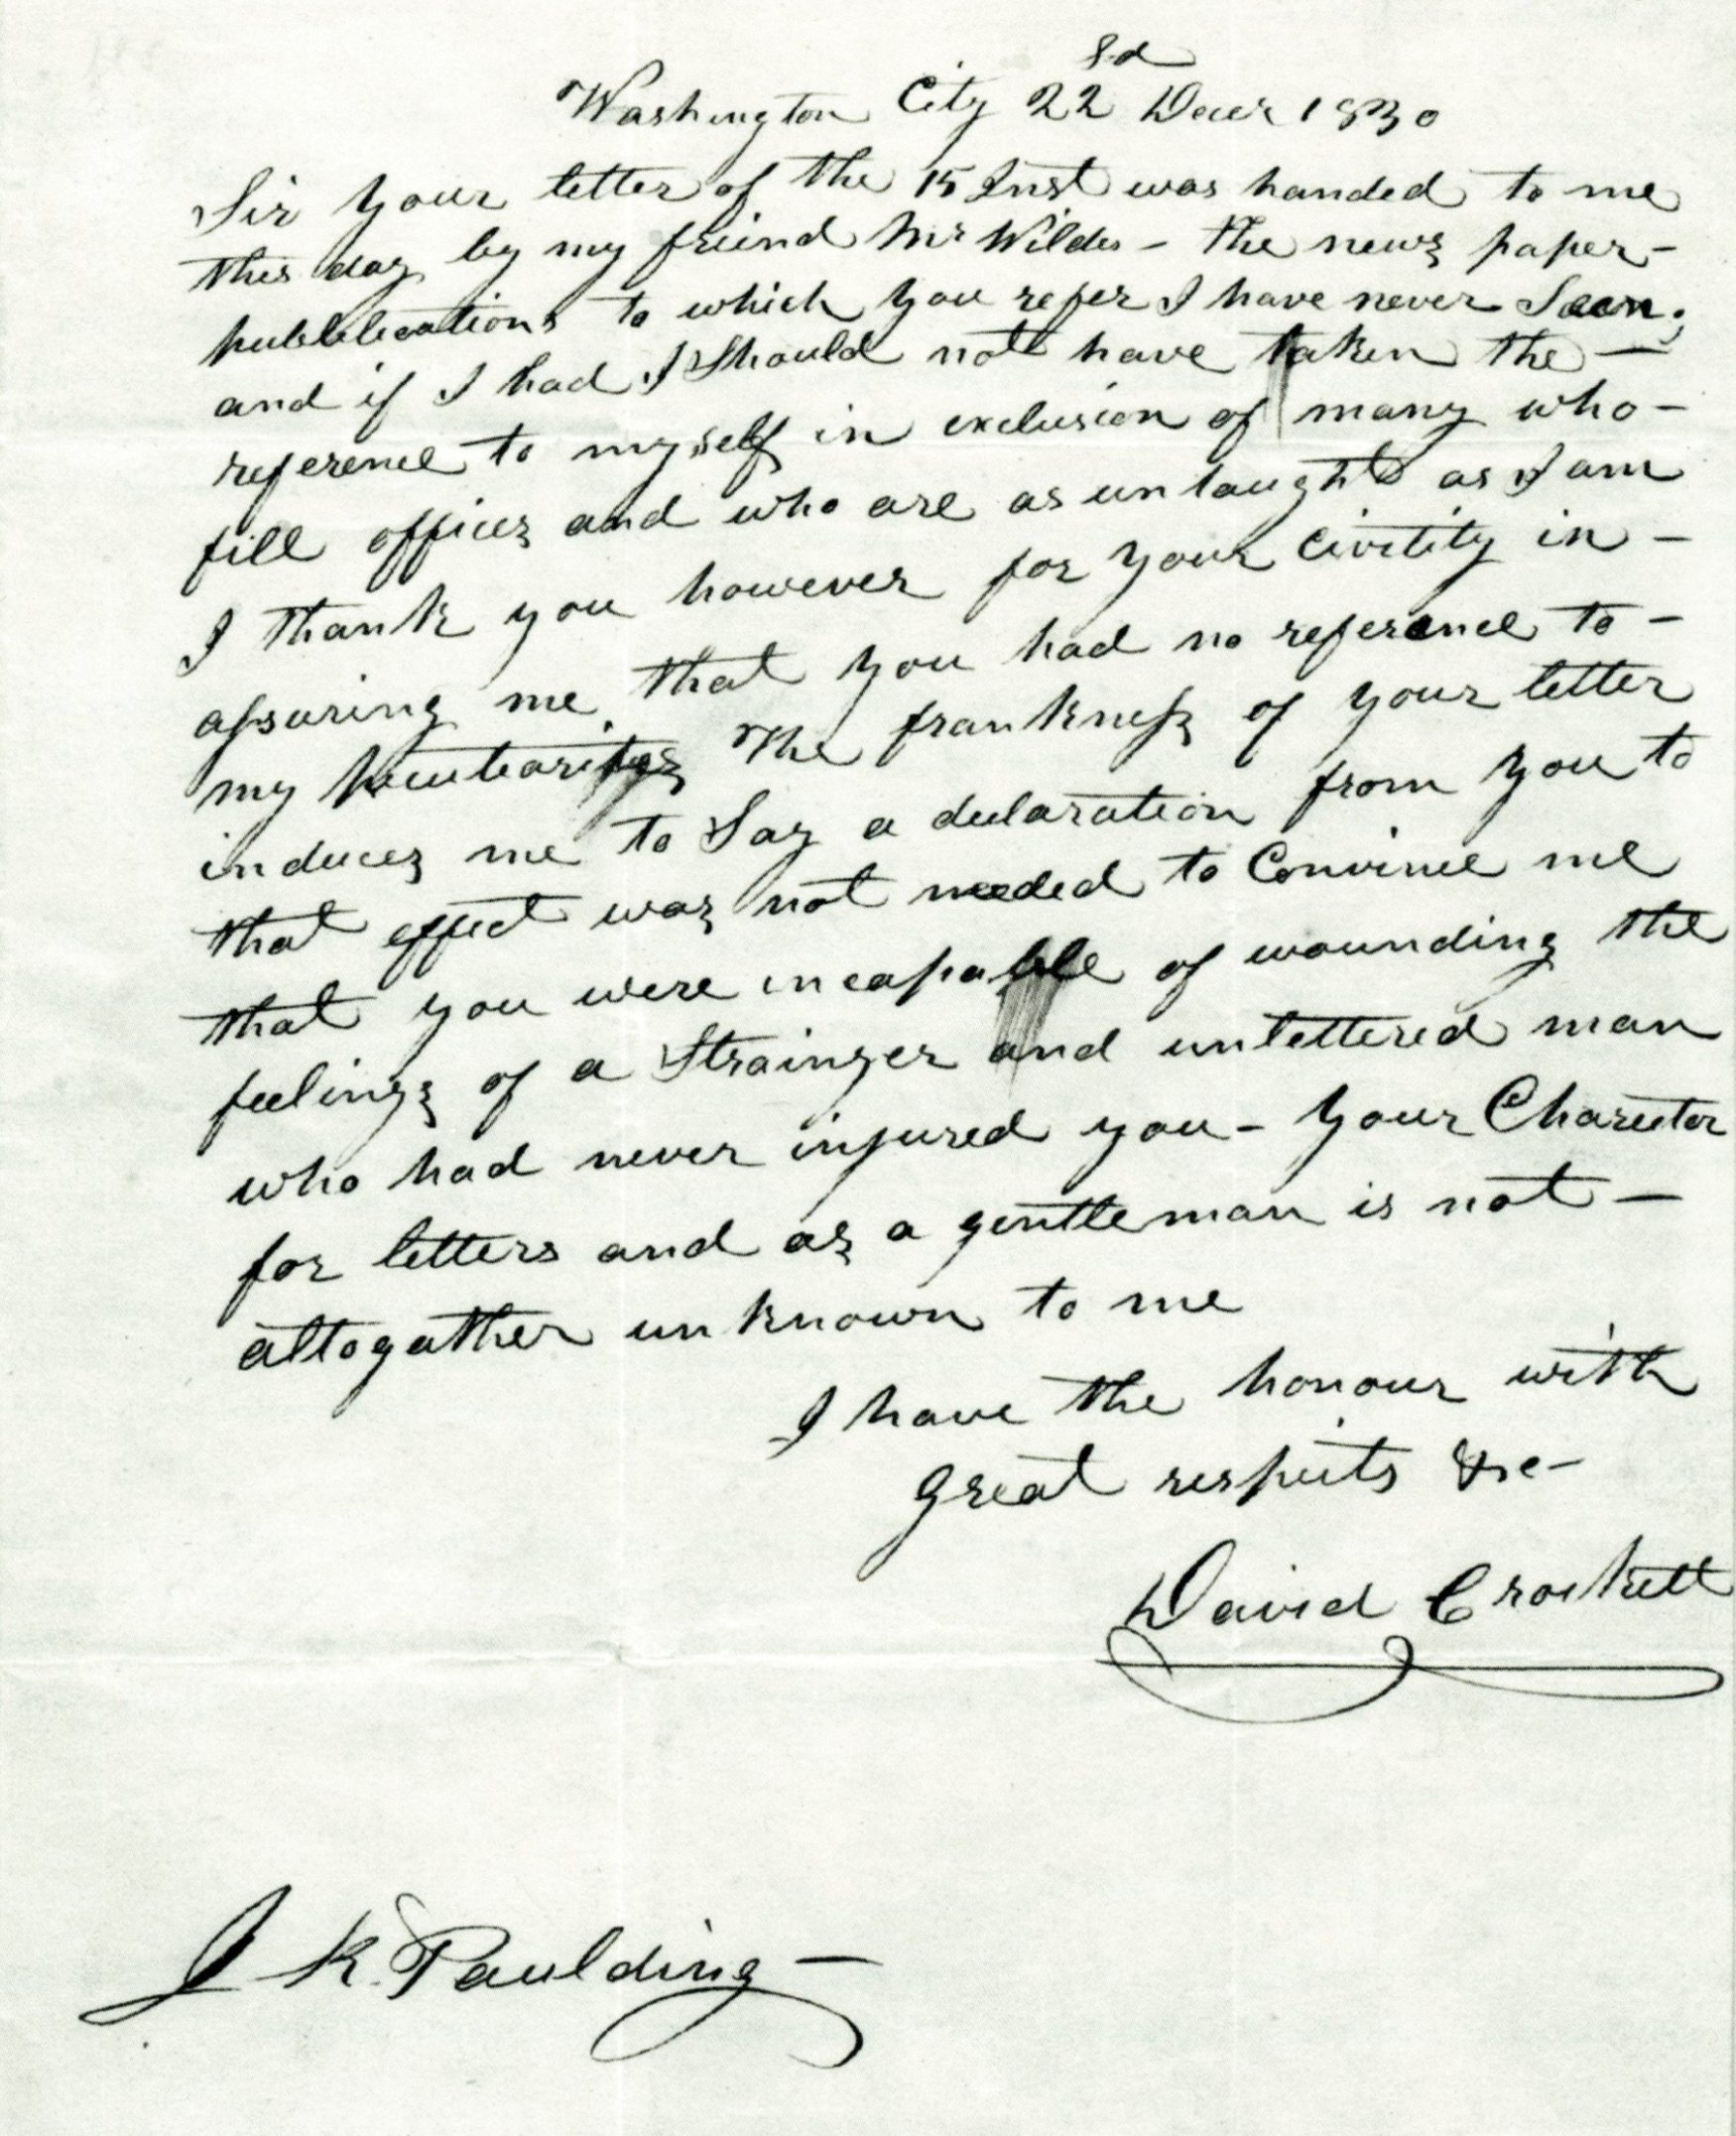 Washington City 22d Decr 1830
Sir your letter of the 15 Inst was handed to me
this day by my friend Mr Wilde - the news paper -
publications to which you refer I have never Seen;
and if I had I Should not have taken the —
reference to myself in exclusion of many who -
fill offices and who are as untaught as I am
I thank you however for your civility in -
assuring me that you had no reference to -
my peculiarities The frankness of your letter
induces me to Say a declaration from you to
that effect was not needed to Convince me
that you were incapable of wounding the
feelings of a Strainger and unlettered man
who had never injured you - your Charector
for letters and as a gentleman is not —
altogather unknown to me
I have the honour with
great respects &c -
David Crockett
J K. Paulding —